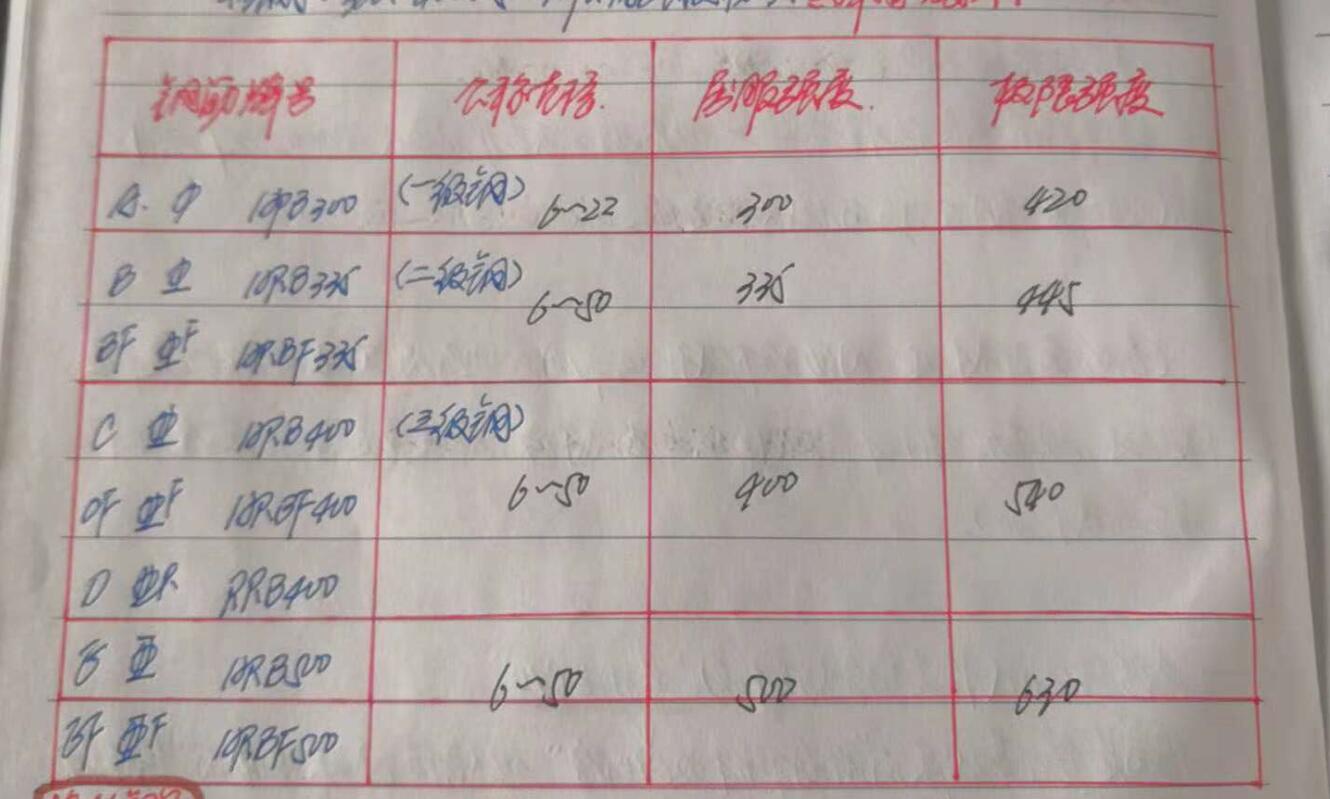 钢筋牌号 公称直径. 屈服强度. 极限强度
A. Φ HPB300 (一级钢) 6~22 300 420
B Φ HRB335 (二级钢) 6~50 335 445
BF ΦF HRBF335
C Φ HRB400 (三级钢)
CF ΦF HRBF400 6~50 400 540
D ΦR RRB400
E Φ HRB500 6~50 500 630
EF ΦF HRBF500